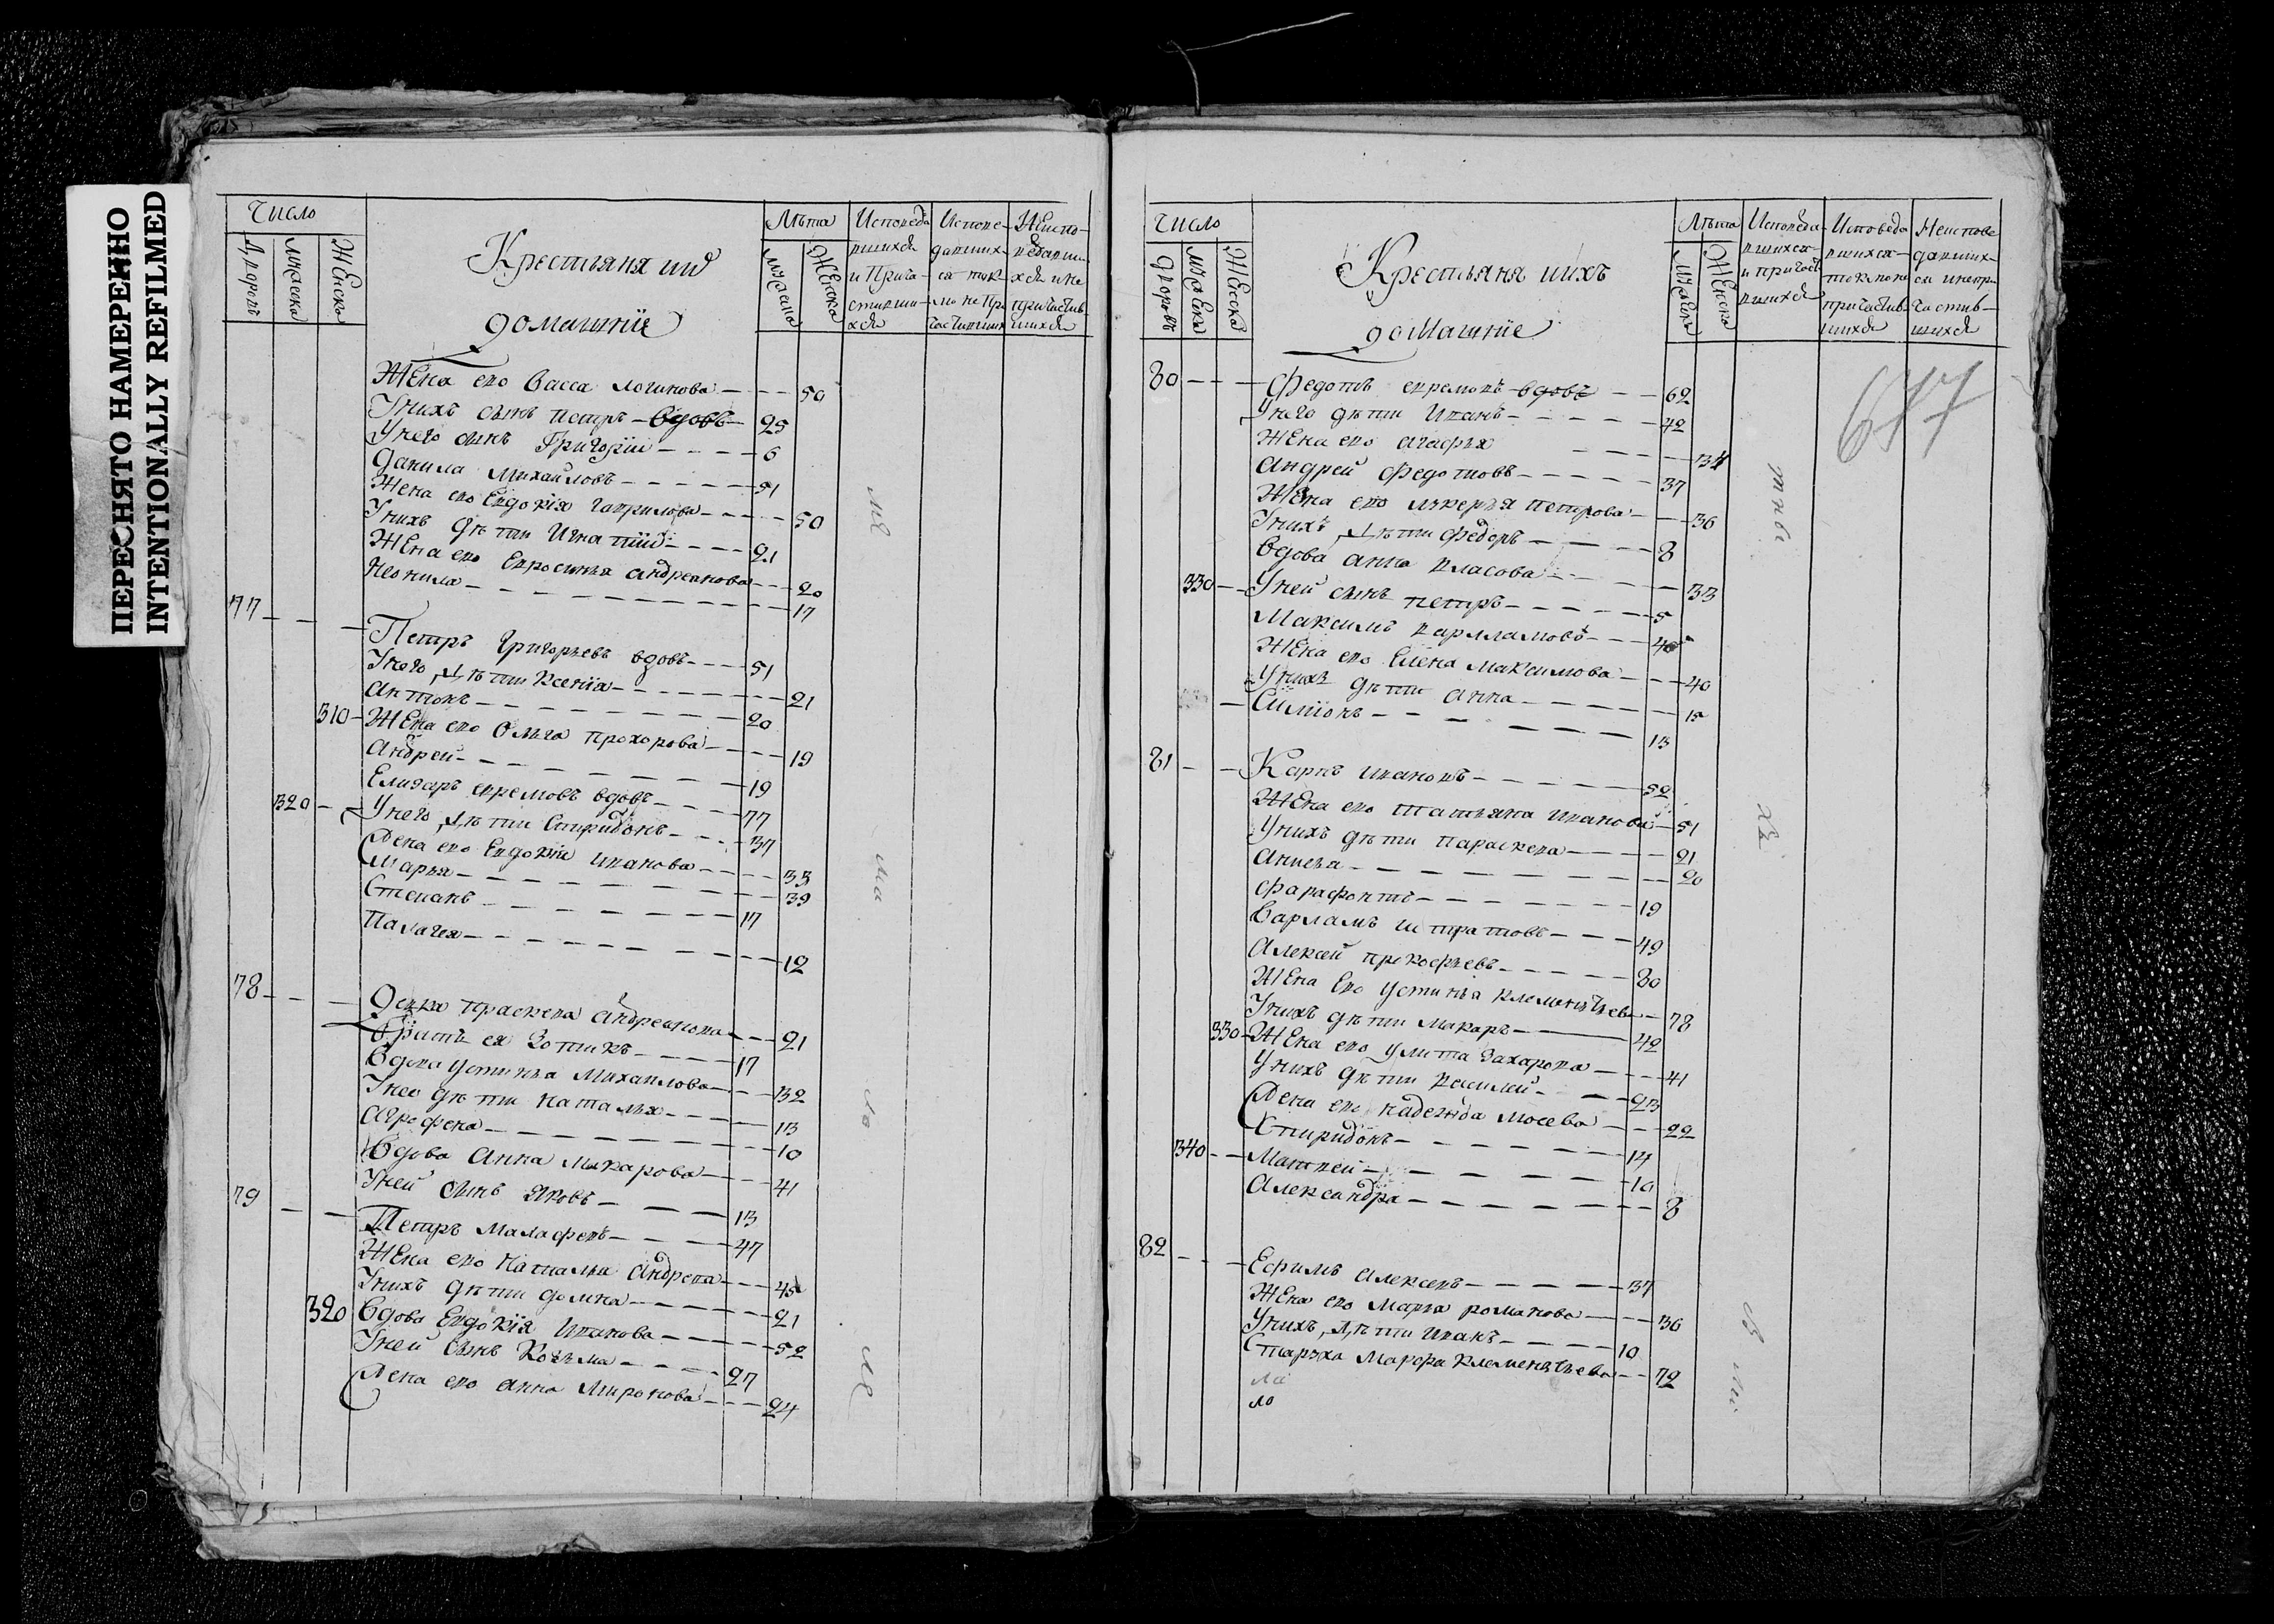 ПЕРЕСНЯТО НАМЕРЕННО
INTENTIONALLY REFILMED
Число
Дворовъ
Мужеска
Женска
Крестьяня ихъ
домашнїе
Лѣта
Мужеска
Женска
Исповеда
вшихся
и Прича-
стивши-
хся
Испове-
давших-
ся ток-
мо не При
частивших
Неиспо-
ведавши-
хся и не
причастив
шихся
Жена ево Васса логинова 50
Унихъ сынъ петръ вдовъ 25
Унего сынъ Григорїи 6
Данила Михаиловъ 51
Жена ево Евдокїя гаврилова 50
Унихъ дѣти Игнатїи 21
Жена ево Евросинья андреянова 20
Неонила 17
77 Петръ Григорьевъ вдовъ 51
Унего дѣти Ксенїя 21
Антонъ 20
310 Жена ево Ольга прохорова 19
Андреи 19
Елизаръ евремовъ вдовъ 77
320 Унего дѣти Спиридонъ 37
Жена ево Евдокїя иванова 33
Марья 39
Степанъ 17
Палагея 12
78 Девка праскева андреянова 21
Братъ ея Зотикъ 17
Вдова устинья Михаилова 32
Унее дѣти наталья 13
Агрофена 10
Вдова Анна макарова 41
Уней сынъ яковъ 13
79 Петръ малафеевъ 47
Жена ево Наталья андреева 45
Унихъ дѣти домна 21
320 Вдова Евдокїя иванова 52
Уней сынъ Козьма 27
Жена ево анна миронова 24
Число
дворовъ
мужеска
Женска
Крестьяня ихъ
домашнїе
Лѣта
мужеска
Женска
Исповеда-
вшихся
и причаст
вшихся
Исповеда
вшихся
токмо не
причастив-
шихся
Неисповe
давших-
ся инепри
частив-
шихся
677
80 Федотъ евремовъ вдовъ 62
Унего дѣти Иванъ 42
Жена ево агафья 34
Андреи Федотовъ 37
Жена ево лукерья петрова 36
Унихъ дѣти федоръ 8
Вдова анна власова 33
330 Уней сынъ петръ 5
Максимъ варламовъ 40
Жена ево Елена максимова 40
Унихъ дѣти анна 15
Симїонъ 13
81 Карпъ ивановъ 52
Жена ево татьяна иванова 51
Унихъ дѣти параскева 21
Анисья 20
Фарафонтъ 19
Варламъ 49
Алексеи прокофьевъ 80
Жена Ево устинья клементьева 78
Унихъ дѣти макаръ 42
330 Жена ево улита Захарова 41
Унихъ дѣти василеи 23
Жена ево надежда мосева 22
Спиридонъ 14
340 Матвеи 10
Александра 8
82 Ефимъ алексеевъ 37
Жена ево марья романова 36
Унихъ дѣти иванъ 10
Старуха марфа клементьева 72
ло